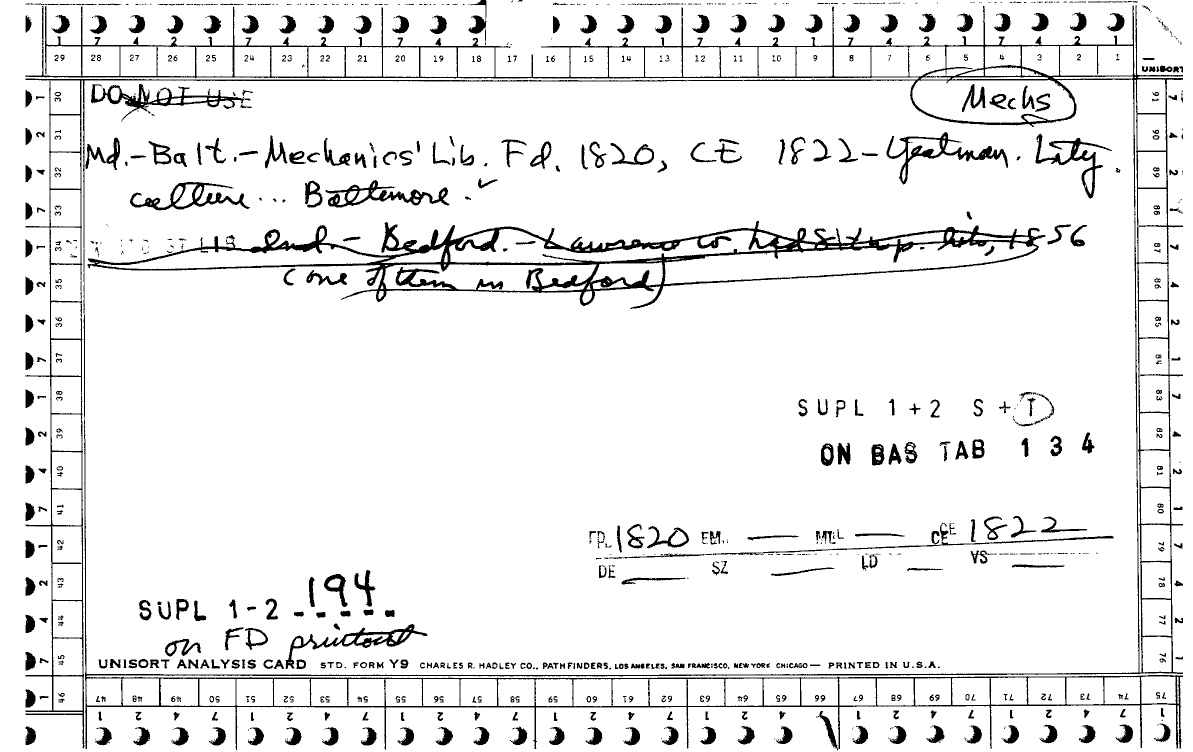 1 7 4 2 1 7 4 2 1 7 4 2 4 2 1 7 4 2 1 7 4 2 1 7 4 2 1
29 28 27 26 25 24 23 22 21 20 19 18 17 16 15 14 13 12 11 10 9 8 7 6 5 4 3 2 1
UNISORT
DO NOT USE
Mechs
Md.-Balt.-Mechanics' Lib. Fd. 1820, CE 1822-Yeatman. Lity
culture... Baltimore.
Ind.- Bedford.- Lawrence co. had 8 twp. libs, 1856
(one of them in Bedford)
SUPL 1+2 S+T
ON BAS TAB 1 3 4
FD. 1820 EM. MLL CE 1822
DE SZ LD VS
SUPL 1-2 194
on FD printout
UNISORT ANALYSIS CARD STD. FORM Y9 CHARLES R. HADLEY CO., PATHFINDERS, LOS ANGELES, SAN FRANCISCO, NEW YORK CHICAGO — PRINTED IN U.S.A.
30 31 32 33 34 35 36 37 38 39 40 41 42 43 44 45 46
91 90 89 88 87 86 85 84 83 82 81 80 79 78 77 76
47 48 49 50 51 52 53 54 55 56 57 58 59 60 61 62 63 64 65 66 67 68 69 70 71 72 73 74 75